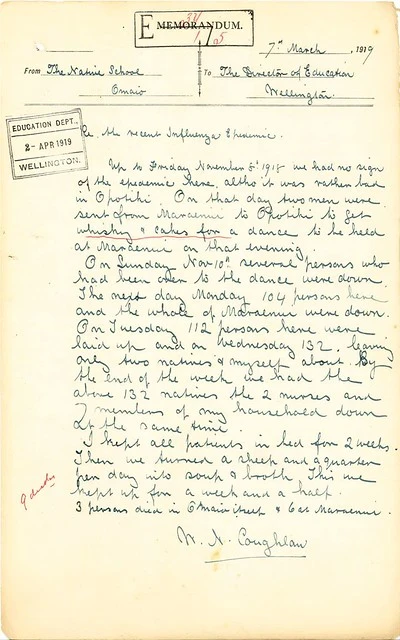 E
MEMORANDUM.
7th March, 1919
From The Native School
Omaio
To The Director of Education
Wellington.
EDUCATION DEPT.,
2- APR 1919
WELLINGTON.
Re the recent Influenza Epedemic.
Up to Friday November 8th 1918 we had no sign
of the epedemic here, altho it was rather bad
in Opotiki. On that day two men were
sent from Maraenui to Opotiki to get
whisky & cakes for a dance to be held
at Maraenui on that evening.
On Sunday Nov 10th several persons who
had been over to the dance were down.
The next day Monday 104 persons here
and the whole of Maraenui were down.
On Tuesday 112 persons here were
laid up and on Wednesday 132, leaving
only two natives & myself about. By
the end of the week we had the
above 132 natives the 2 nurses and
7 members of my household down
at the same time.
I kept all patients in bed for 2 weeks.
Then we turned a sheep and a quarter
per day into soup & broth. This we
kept up for a week and a half.
9 deaths
3 persons died in Omaio itself & 6 at Maraenui.
W. N. Coughlan